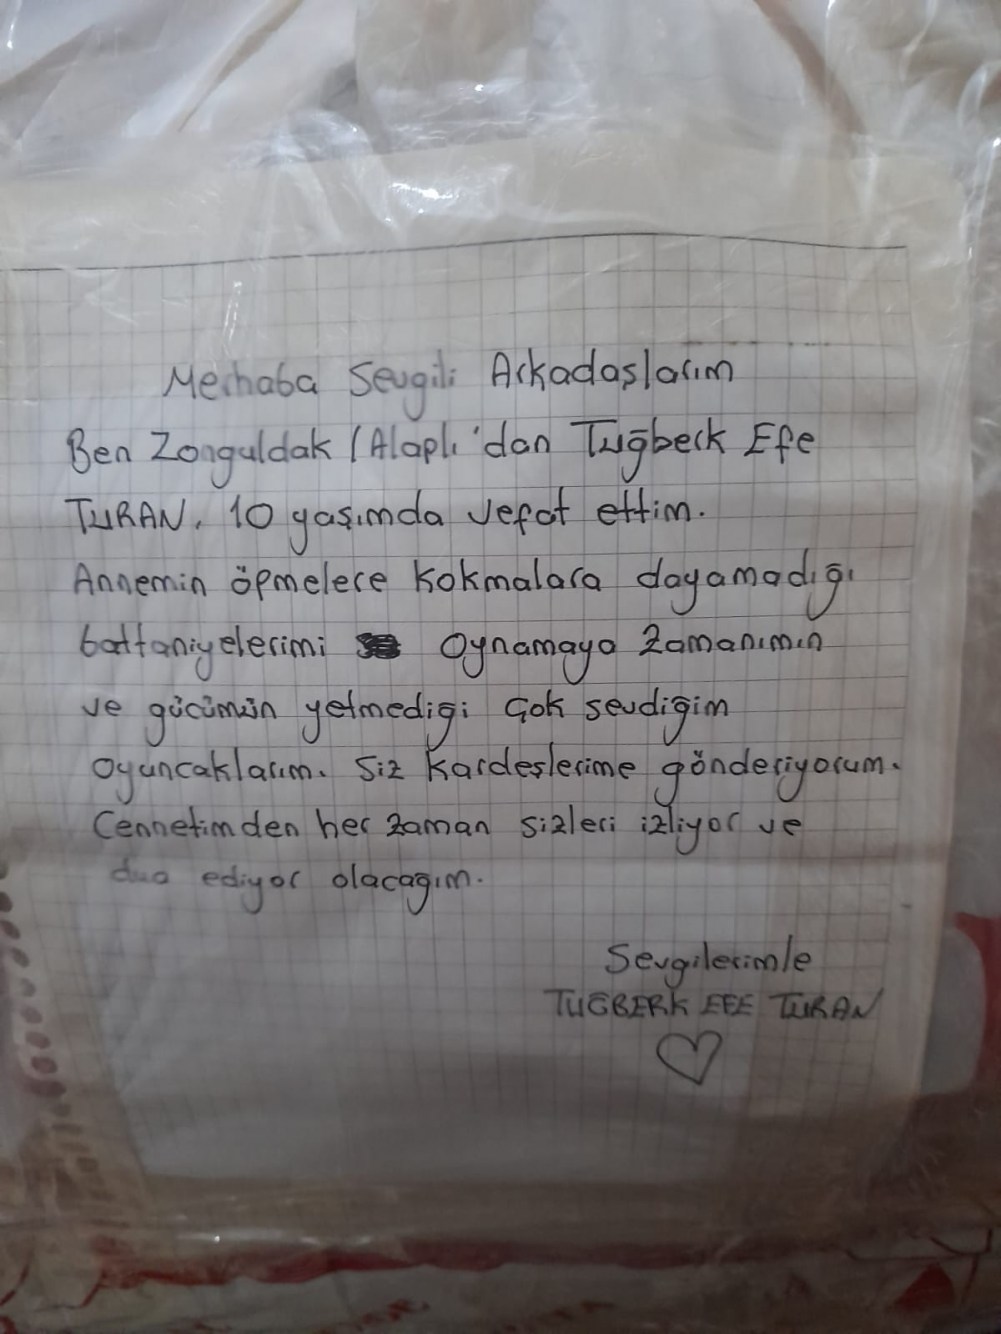 Merhaba Sevgili Arkadaşlarım
Ben Zonguldak / Alaplı 'dan Tuğberk Efe
TURAN. 10 yaşımda vefat ettim.
Annemin öpmelere kokmalara dayamadığı
battaniyelerimi Oynamaya zamanımın
ve gücümün yetmediği çok sevdiğim
oyuncaklarım. Siz kardeşlerime gönderiyorum.
Cennetimden her zaman sizleri izliyor ve
dua ediyor olacağım.
Sevgilerimle
TUĞBERK EFE TURAN